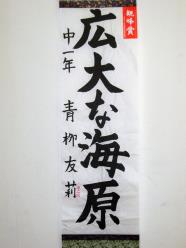 観峰賞
広大な海原
中一年 青柳友莉